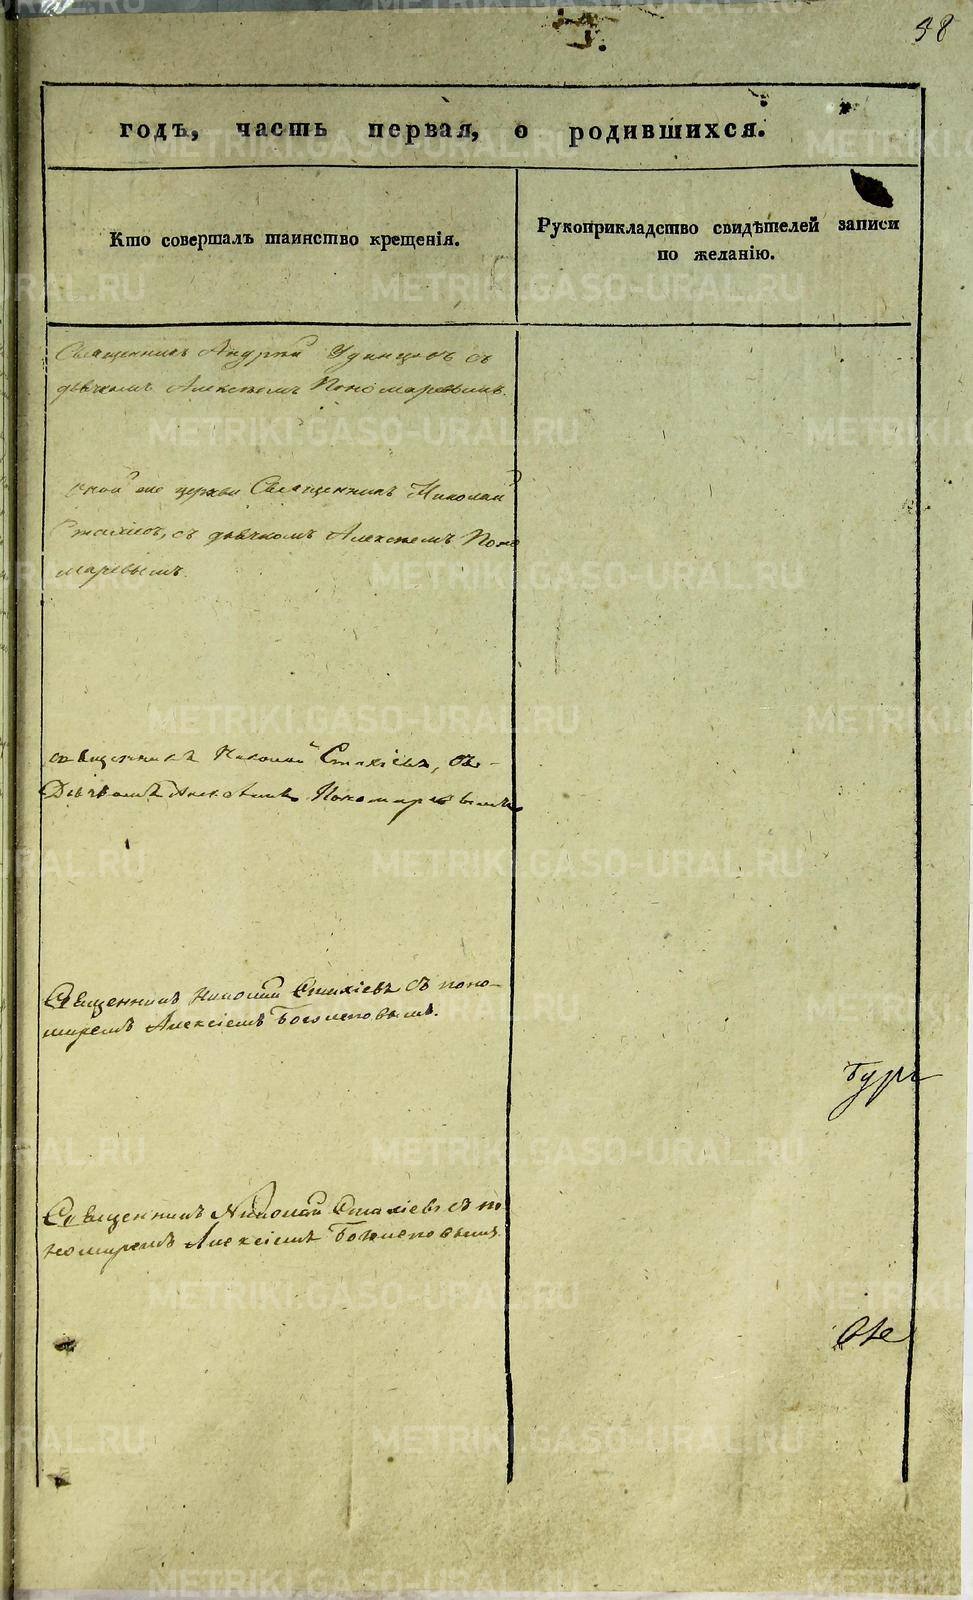 38
годъ, часть первая, о родившихся.
Кто совершалъ таинство крещенія.
Рукоприкладство свидѣтелей записи
по желанію.
Священникъ Андрей Удинцевъ съ
дьячкомъ Алексѣемъ Пономаревымъ.
оной же церкви Священникъ Николай
Стахіевъ, съ дьячкомъ Алексѣемъ Поно
маревымъ.
священникъ Николай Стахіевъ, съ
Дьячкомъ Алексѣемъ Пономаревымъ
Священникъ Николай Стахіевъ съ поно-
маремъ Алексіемъ Боголеповымъ.
Священникъ Николай Стахіевъ съ по
номаремъ Алексіемъ Боголеповымъ.
METRIKI.GASO-URAL.RU